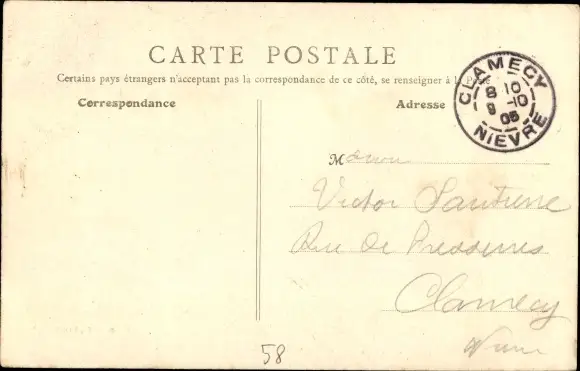 CARTE POSTALE
Certains pays étrangers n'acceptant pas la correspondance de ce côté, se renseigner à la Poste
Correspondance
Adresse
CLAMECY
8 10
9 -10
06
NIEVRE
M
Victor
Rue de
Clamecy
58